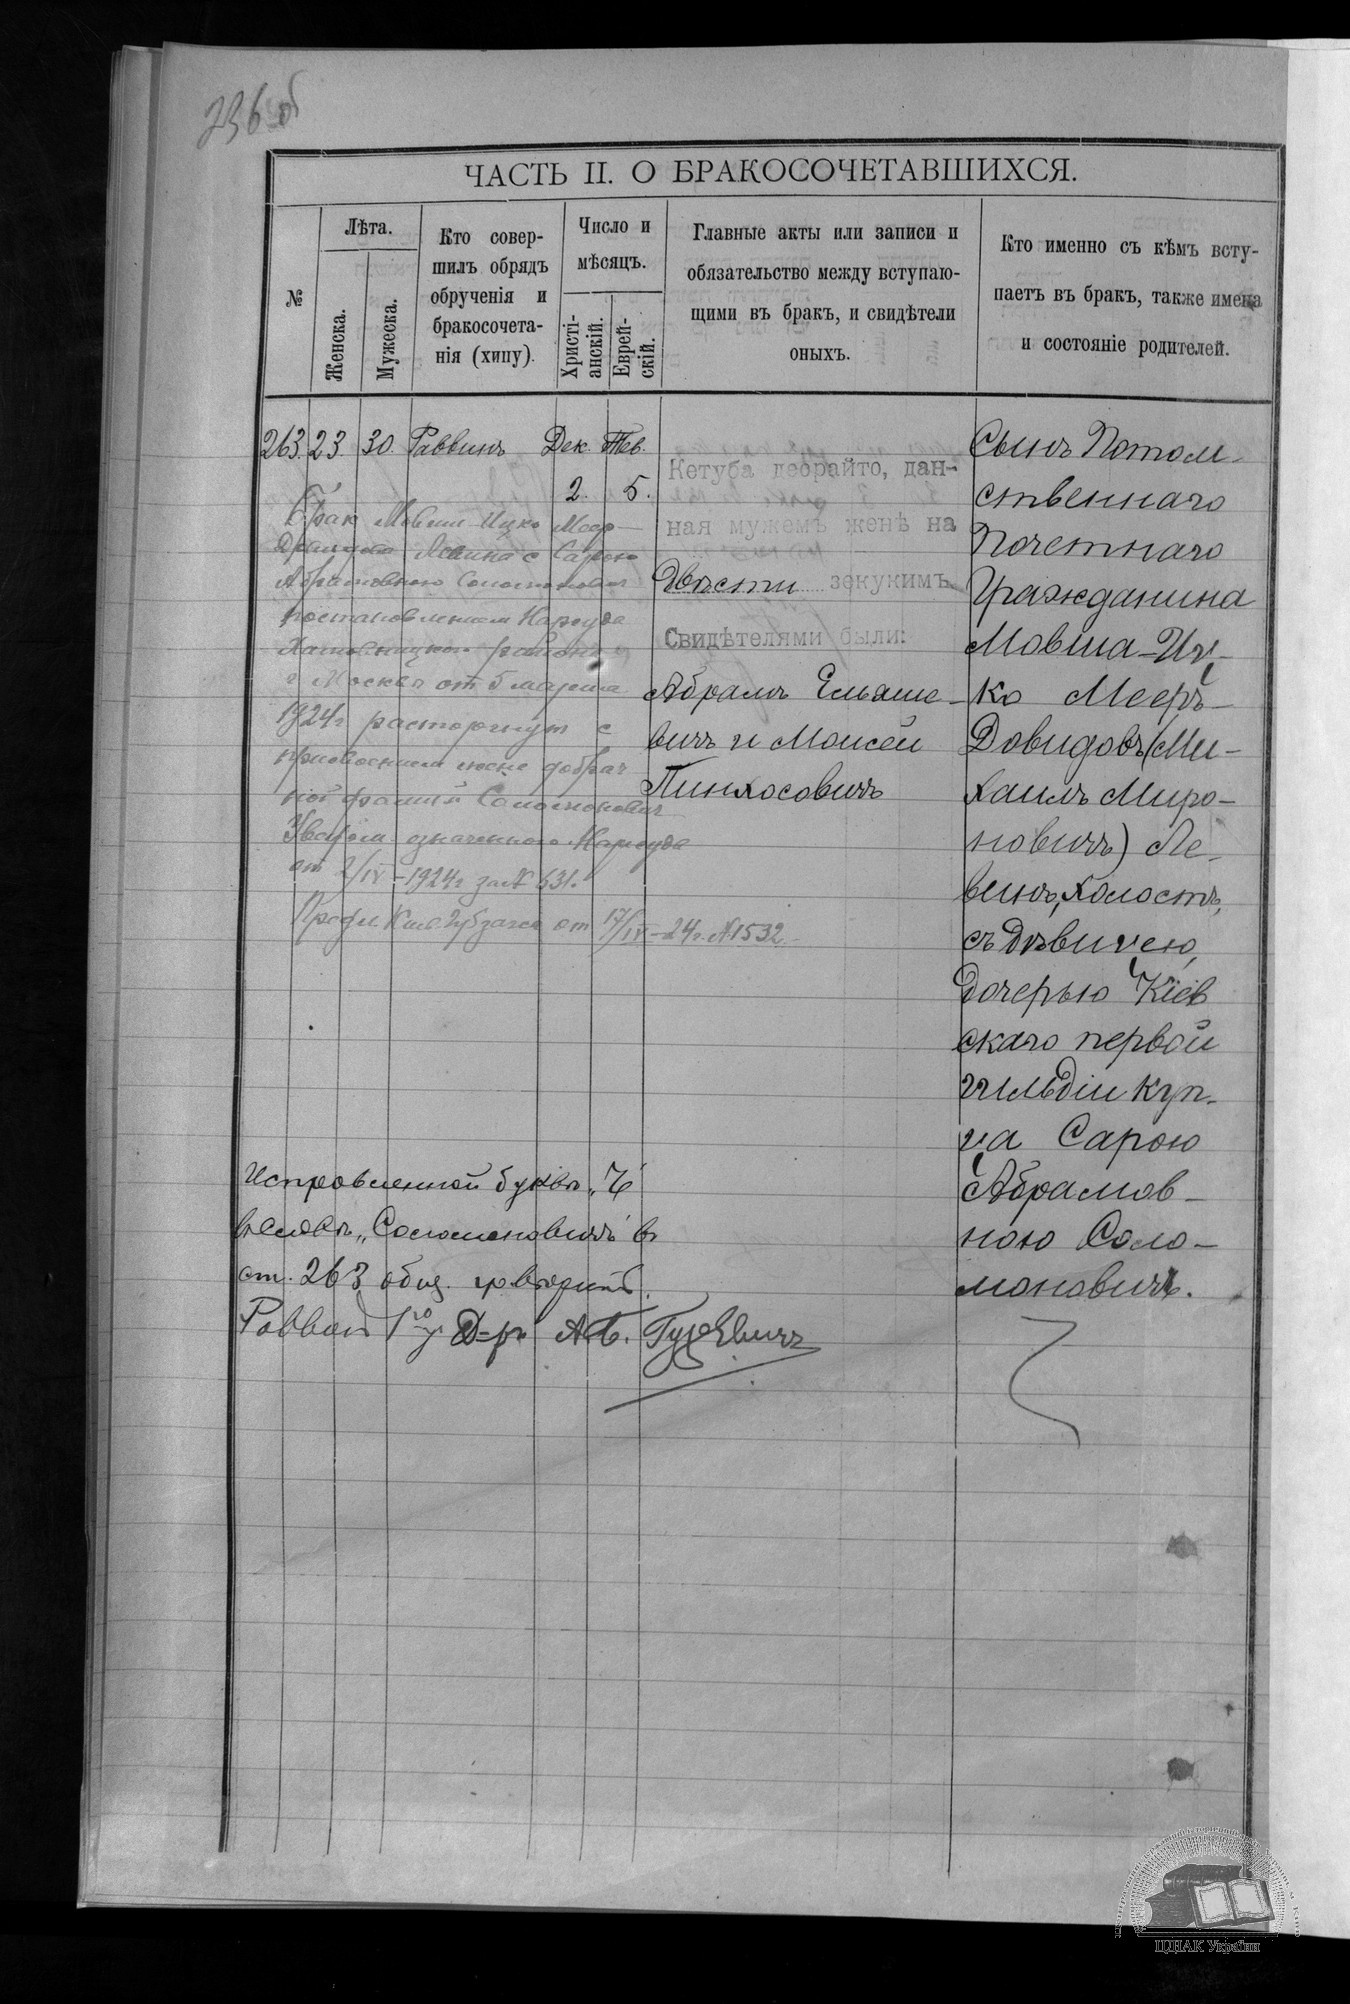 236 об
ЧАСТЬ II. О БРАКОСОЧЕТАВШИХСЯ.
№
Лѣта.
Женска.
Мужеска.
Кто совер-
шилъ обрядъ
обрученія и
бракосочета-
нія (хипу).
Число и
мѣсяцъ.
Христі-
анскій.
Еврей-
скій.
Главные акты или записи и
обязательство между вступаю-
щими въ бракъ, и свидѣтели
оныхъ.
Кто именно съ кѣмъ всту-
паетъ въ бракъ, также имена
и состояніе родителей.
263. 23 30. Раввинъ Дек. Тев.
2. 5.
Кетуба дебрайто, дан-
ная мужемъ женѣ на
Двѣсти зекукимъ
Свидѣтелями были:
Абрамъ Ельяше-
вичъ и Моисей
Пинхосовичъ
Сынъ Потом-
ственнаго
Почетнаго
Гражданина
Мовша-Иц-
ко Мееръ-
Довидовъ (Ми-
хаилъ Миро-
новичъ) Ле-
винъ, холостъ,
съ дѣвицею,
дочерью Кіев
скаго первой
гильдіи куп-
ца Сарою
Абрамов-
ною Соло-
моновичъ.
Брак Мовши-Ицко Меер-
Довидова Левина с Сарою
Абрамовною Соломонович
постановлением Нарсуда
Хамовницкого района
г. Москвы от 5 марта
1924 г расторгнут с
присвоением жене добрач
ной фамилии Соломонович
означенного Нарсуда
от 2/IV-1924 г за № 631.
Губзагса от 17/IV-24 г. № 1532
Исправленной букве „ч"
въ словѣ „Соломоновичъ" въ
ст. 263 общ.
Раввин Д-ръ А. Б. Гуревичъ
ЦДІАК України